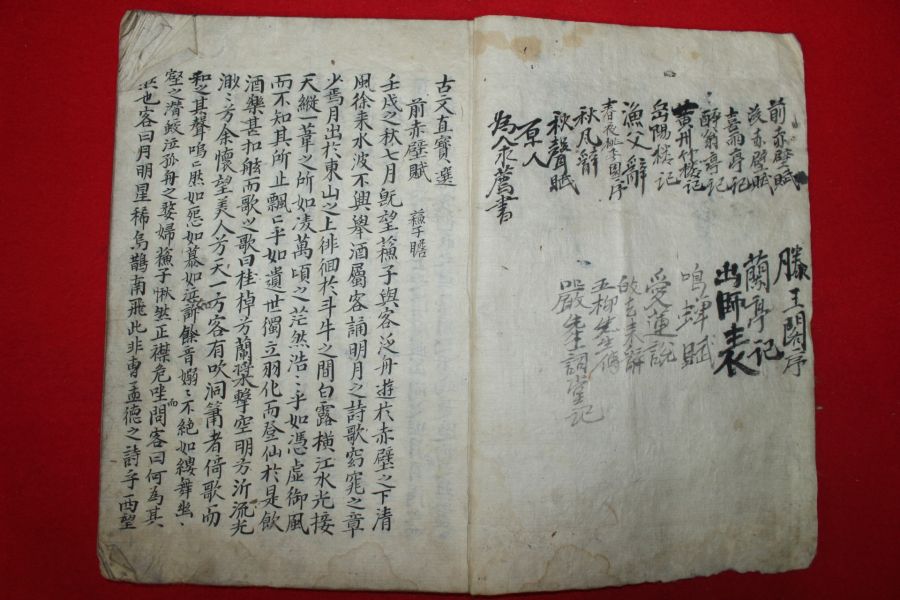 前赤壁賦
後赤壁賦
喜雨亭記
醉翁亭記
黄州竹楼記
岳陽樓記
漁父辭
春夜桃李園序
秋風辭
秋聲賦
原人
為人求薦書
滕王閣序
蘭亭記
出師表
鳴蟬賦
愛蓮說
歸去来辭
五柳先生傳
嚴先生祠堂記
古文直寶選
前赤壁賦 蘓子瞻
壬戌之秋七月旣望蘓子與客泛舟遊於赤壁之下清
風徐来水波不興舉酒屬客誦明月之詩歌窈窕之章
少焉月出於東山之上徘徊於斗牛之間白露橫江水光接
天縱一葦之所如凌萬頃之茫然浩〻乎如憑虛御風
而不知其所止飄〻乎如遺世獨立羽化而登仙於是飮
酒樂甚扣舷而歌之歌曰桂棹兮蘭槳擊空明兮泝流光
渺〻兮余懷望美人兮天一方客有吹洞簫者倚歌而
和之其聲嗚〻然如怨如慕如泣如訴餘音嫋〻不絶如縷舞幽
壑之潛蛟泣孤舟之嫠婦蘓子愀然正襟危坐而問客曰何為其
然也客曰月明星稀烏鵲南飛此非曺孟德之詩乎西望